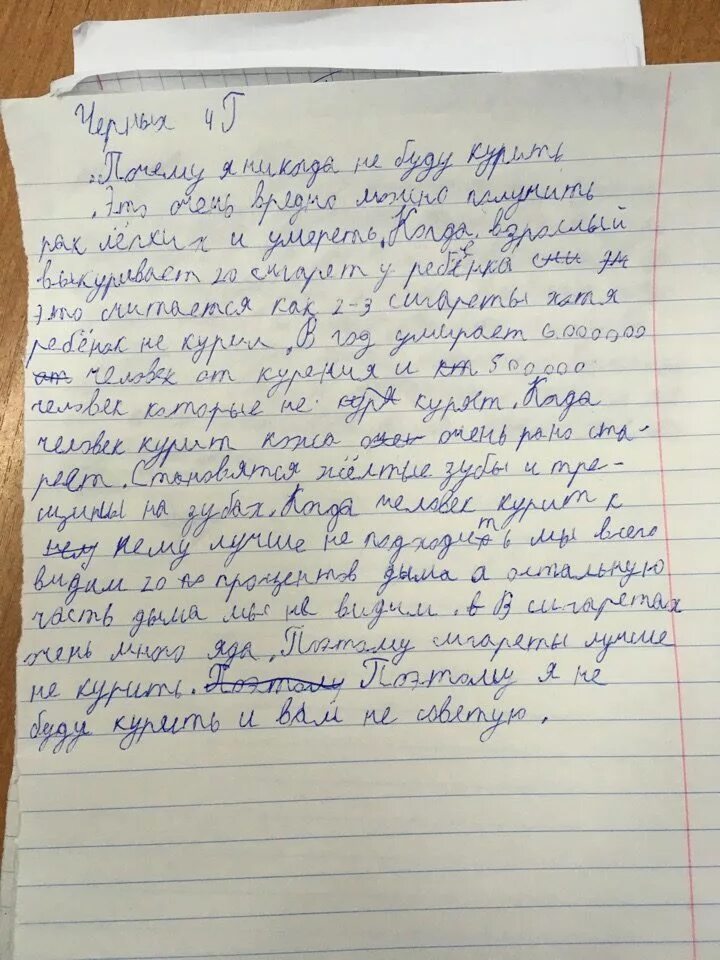 Черных 4 Г
Почему я никогда не буду курить
Это очень вредно можно получить
рак лёгких и умереть. Когда взрослый
выкуривает 20 сигарет у ребёнка
это считается как 2-3 сигареты хотя
ребёнок не курил. В год умирает 6.000000
человек от курения и 500000
человек которые не курят. Когда
человек курит кожа очень рано ста-
реет. Становятся жёлтые зубы и тре-
щины на зубах. Когда человек курит к
нему лучше не подходить мы всего
видим 20 процентов дыма а остальную
часть дыма мы не видим. В сигаретах
очень много яда. Поэтому сигареты лучше
не курить. Поэтому Поэтому я не
буду курить и вам не советую.